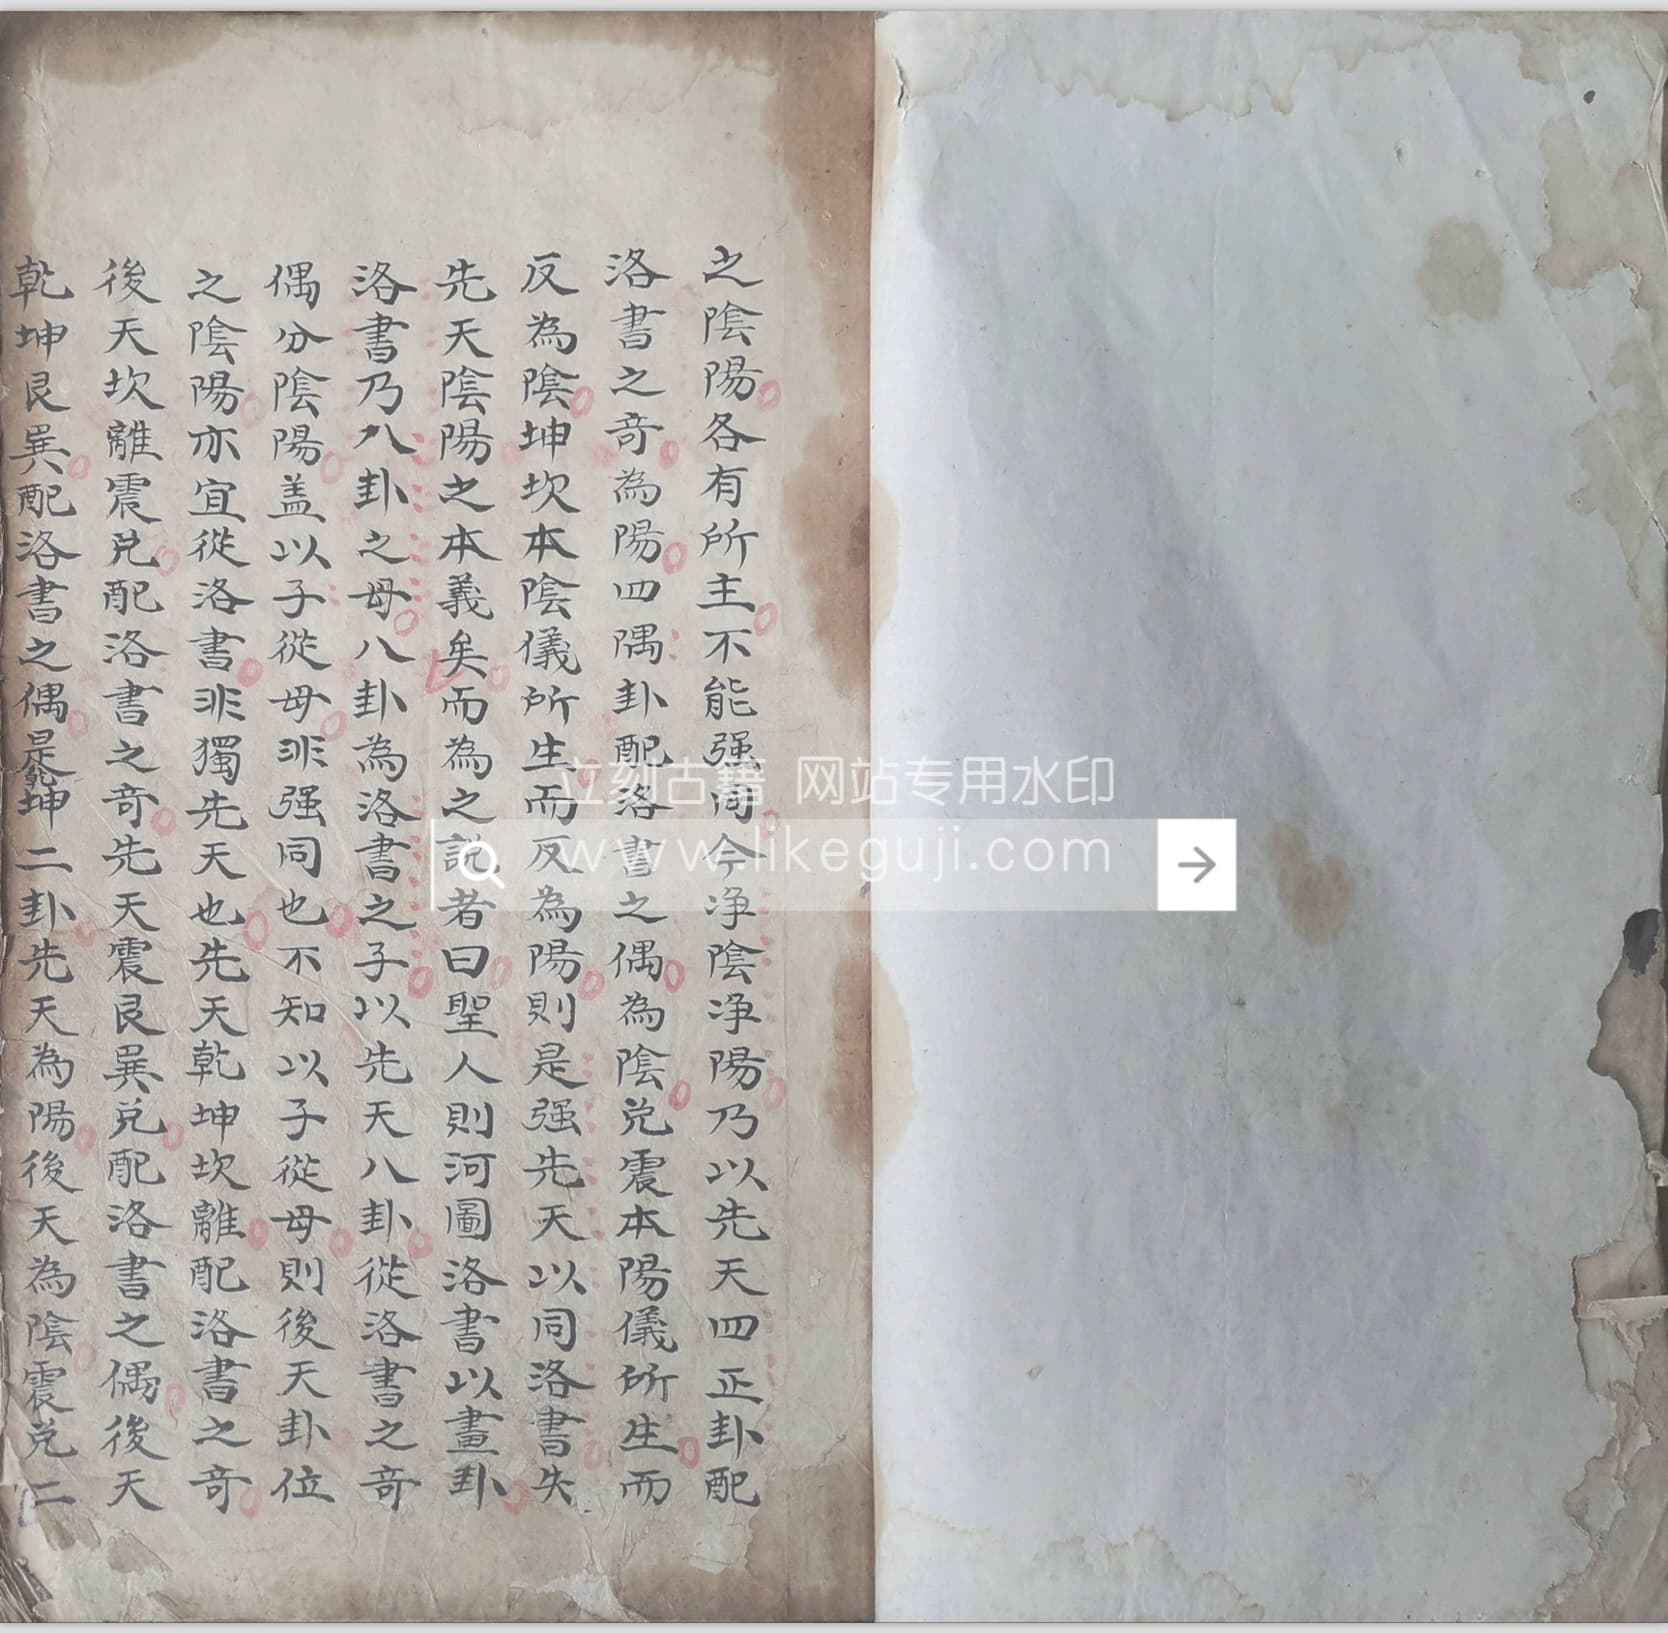 之陰陽各有所主不能强同今净陰净陽乃以先天四正卦配
洛書之奇為陽四隅卦配洛書之偶為陰兌震本陽儀所生而
反為陰坤坎本陰儀所生而反為陽則是强先天以同洛書失
先天陰陽之本義矣而為之説者曰聖人則河圖洛書以畫卦
洛書乃八卦之母八卦為洛書之子以先天八卦從洛書之奇
偶分陰陽盖以子從母非强同也不知以子從母則後天卦位
之陰陽亦宜從洛書非獨先天也先天乾坤坎離配洛書之奇
後天坎離震兌配洛書之奇先天震艮巽兌配洛書之偶後天
乾坤艮巽配洛書之偶是乾坤二卦先天為陽後天為陰震兌二
立刻古籍 网站专用水印
www.likeguji.com